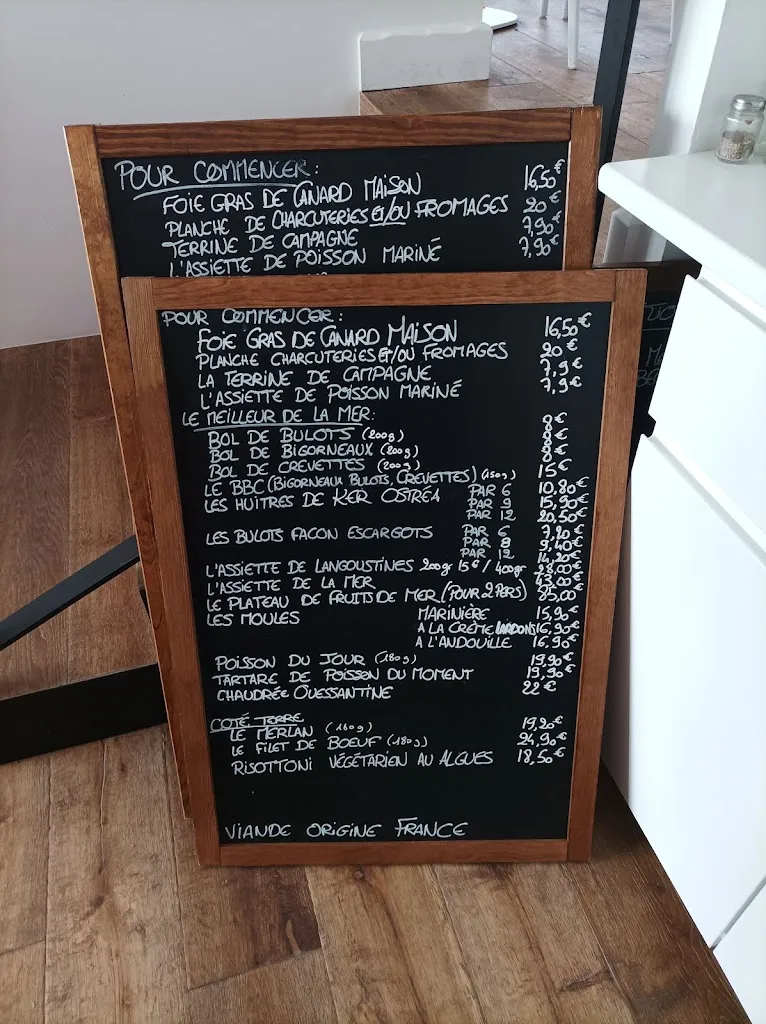 POUR COMMENCER:
FOIE GRAS DE CANARD MAISON 16,50€
PLANCHE DE CHARCUTERIES ET/OU FROMAGES 20€
TERRINE DE CAMPAGNE 7,90€
L'ASSIETTE DE POISSON MARINÉ 7,90€
POUR COMMENCER:
FOIE GRAS DE CANARD MAISON 16,50€
PLANCHE CHARCUTERIES ET/OU FROMAGES 20€
LA TERRINE DE CAMPAGNE 7,9€
L'ASSIETTE DE POISSON MARINÉ 7,9€
LE MEILLEUR DE LA MER:
BOL DE BULOTS (200g) 8€
BOL DE BIGORNEAUX (200g) 8€
BOL DE CREVETTES (200g) 8€
LE BBC (BIGORNEAUX BULOTS, CREVETTES) (150g) 15€
LES HUÎTRES DE KER OSTRÉA PAR 6 10,80€
PAR 9 15,90€
PAR 12 20,50€
LES BULOTS FACON ESCARGOTS PAR 6 7,20€
PAR 8 9,40€
PAR 12 14,20€
L'ASSIETTE DE LANGOUSTINES 200gr 15€/400gr 28,00€
L'ASSIETTE DE LA MER 43,00€
LE PLATEAU DE FRUITS DE MER (POUR 2 PERS) 85,00€
LES MOULES MARINIÈRE 15,90€
A LA CRÈME LARDONS 16,90€
A L'ANDOUILLE 16,90€
POISSON DU JOUR (180g) 19,90€
TARTARE DE POISSON DU MOMENT 19,90€
CHAUDRÉE OUESSANTINE 22€
COTÉ TERRE
LE MERLAN (160g) 19,20€
LE FILET DE BOEUF (180g) 24,90€
RISOTTONI VÉGÉTARIEN AU ALGUES 18,50€
VIANDE ORIGINE FRANCE